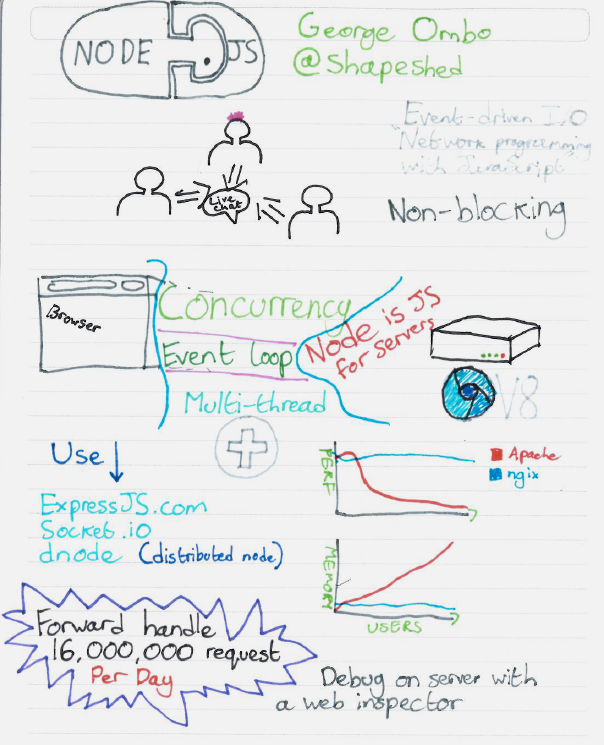 NODE JS
George Ombo
@shapeshed
Event-driven I/O
Network programming
with JavaScript
Live
chat
Non-blocking
Browser
Concurrency
Event loop
Multi-thread
Node is JS
for servers
V8
Use
ExpressJS.com
Socket.io
dnode (distributed node)
PERF
Apache
ngix
MEMORY
USERS
Forward handle
16,000,000 request
Per Day
Debug on server with
a web inspector